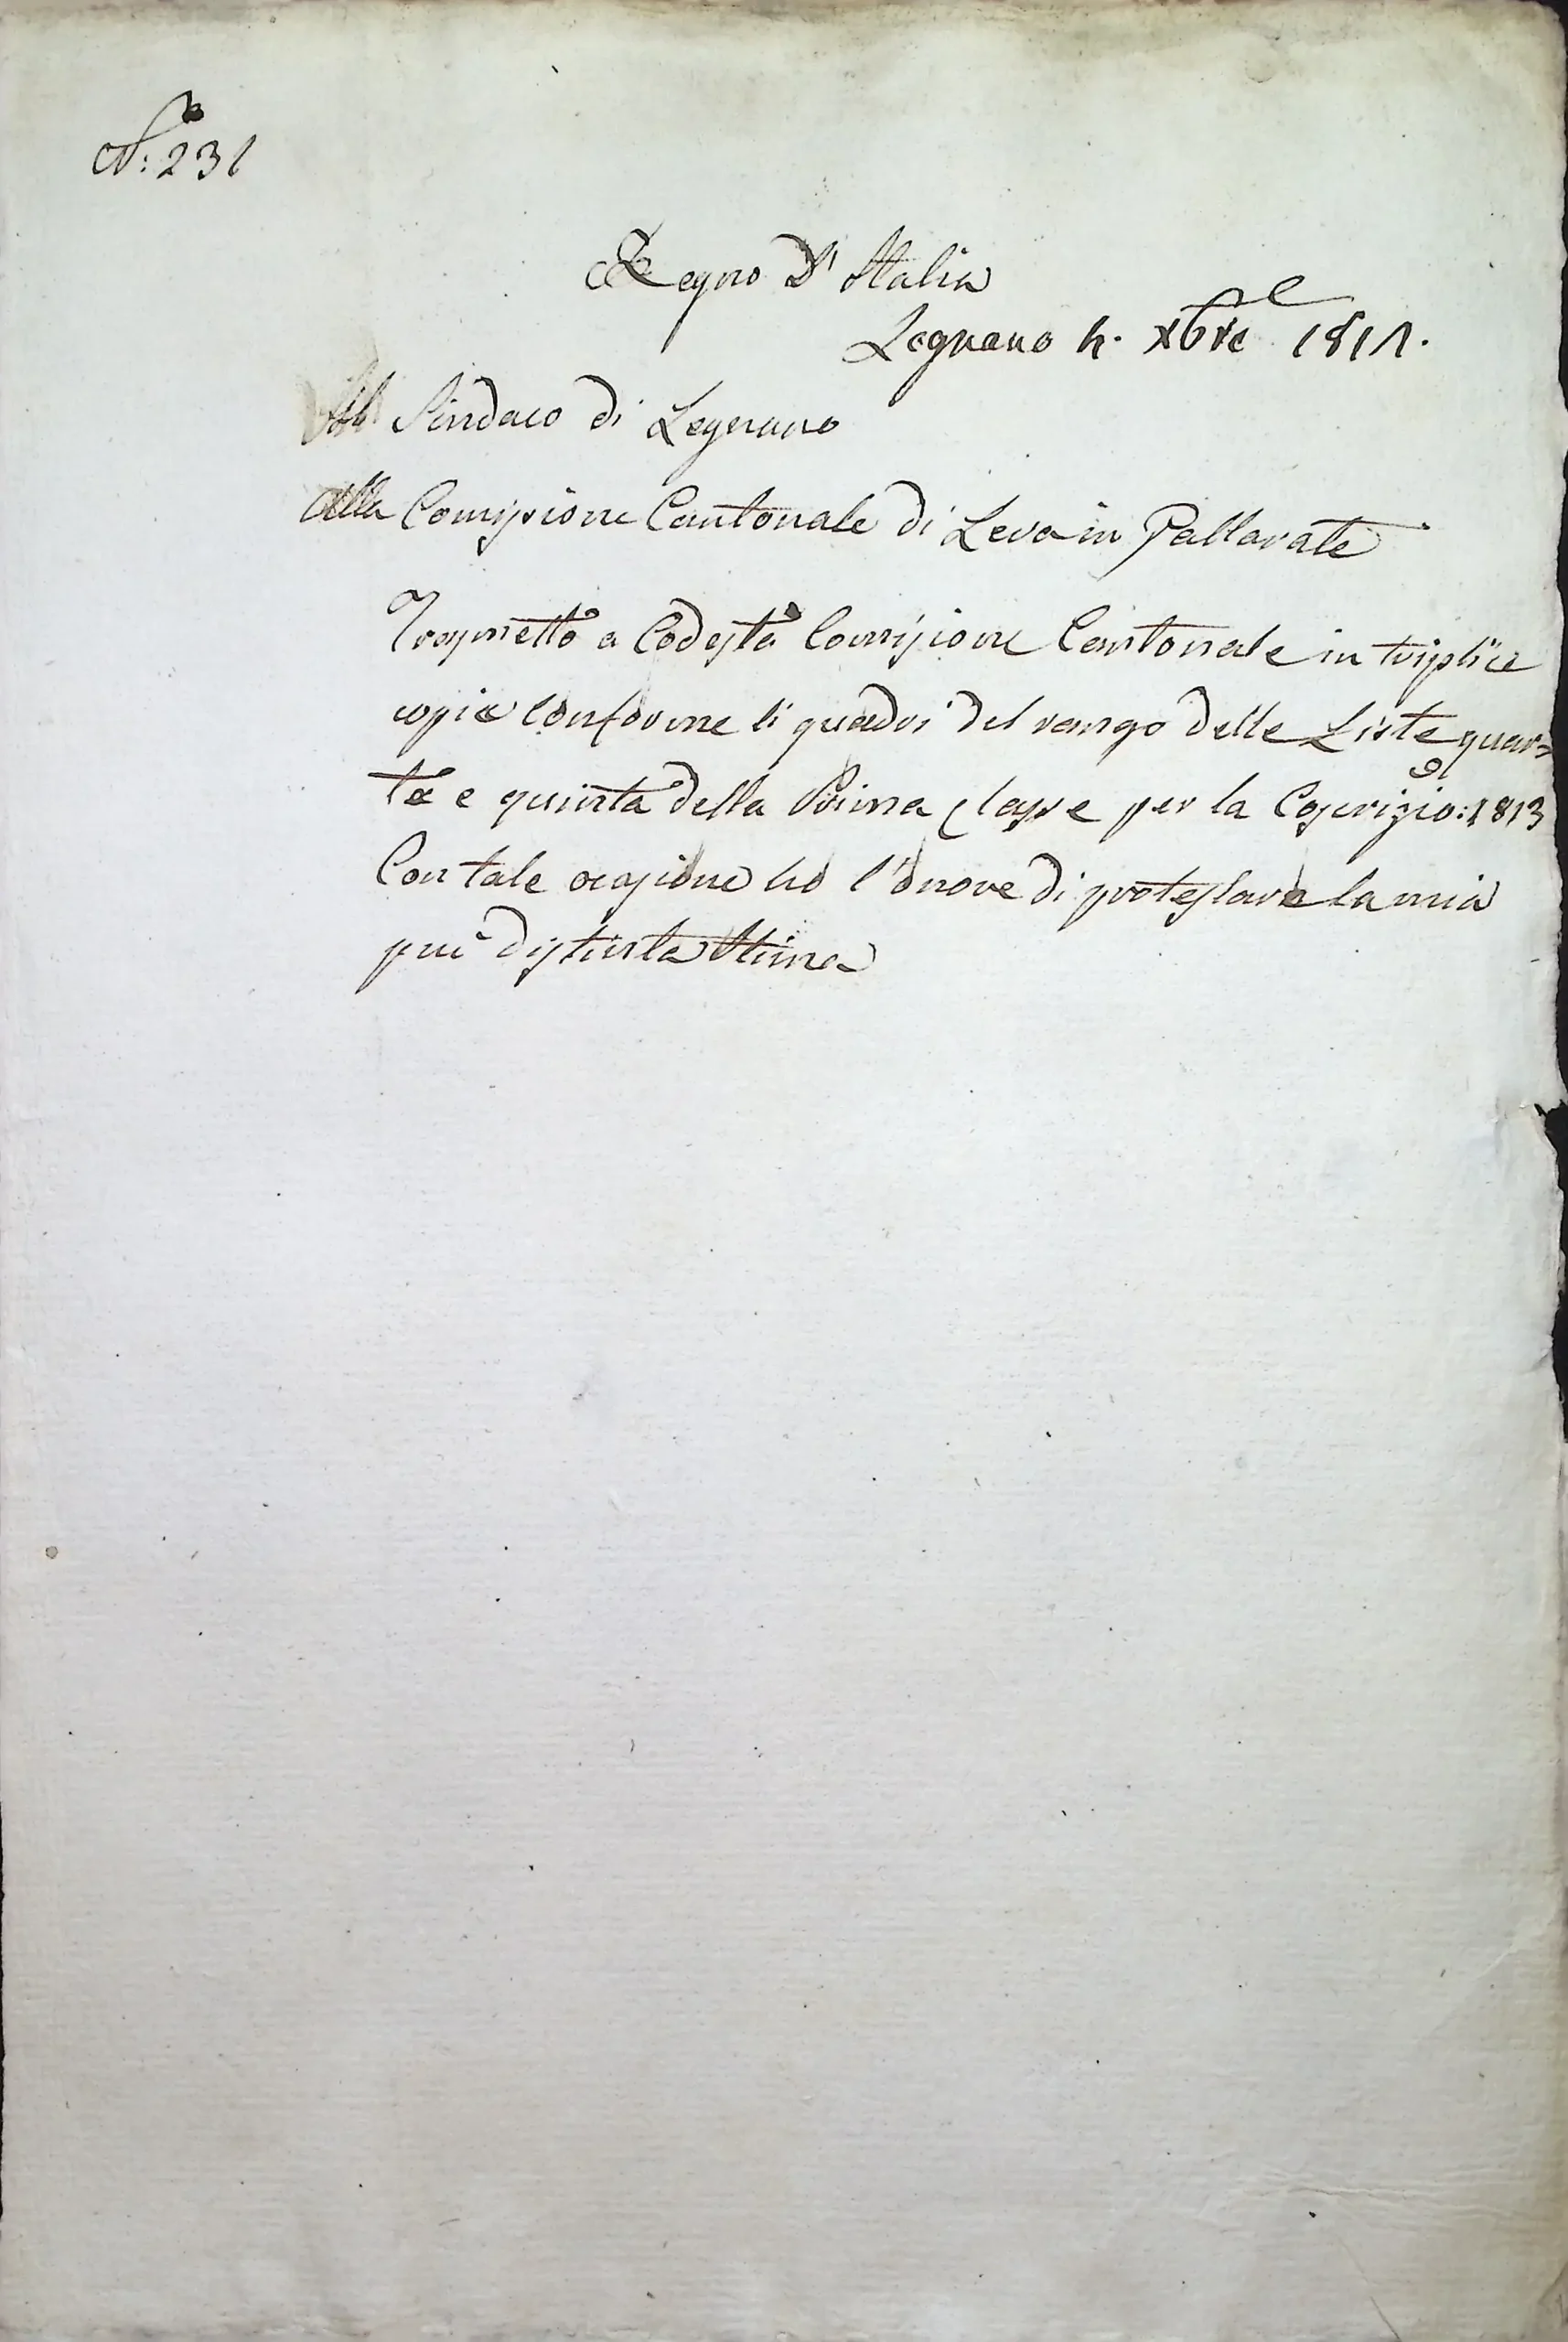 N:o 231
Regno d'Italia
Legnano 4. Xbre 1811.
Il Sindaco di Legnano
Alla Comissione Cantonale di Leva in Gallarate
Trasmetto a Codesta Comissione Cantonale in triplice
copia conforme li quadri del rango delle Liste quar=
ta e quinta della Prima Classe per la Coscrizio:e 1813
Con tale ocasione ho l'onore di protestare la mia
più distinta Stima